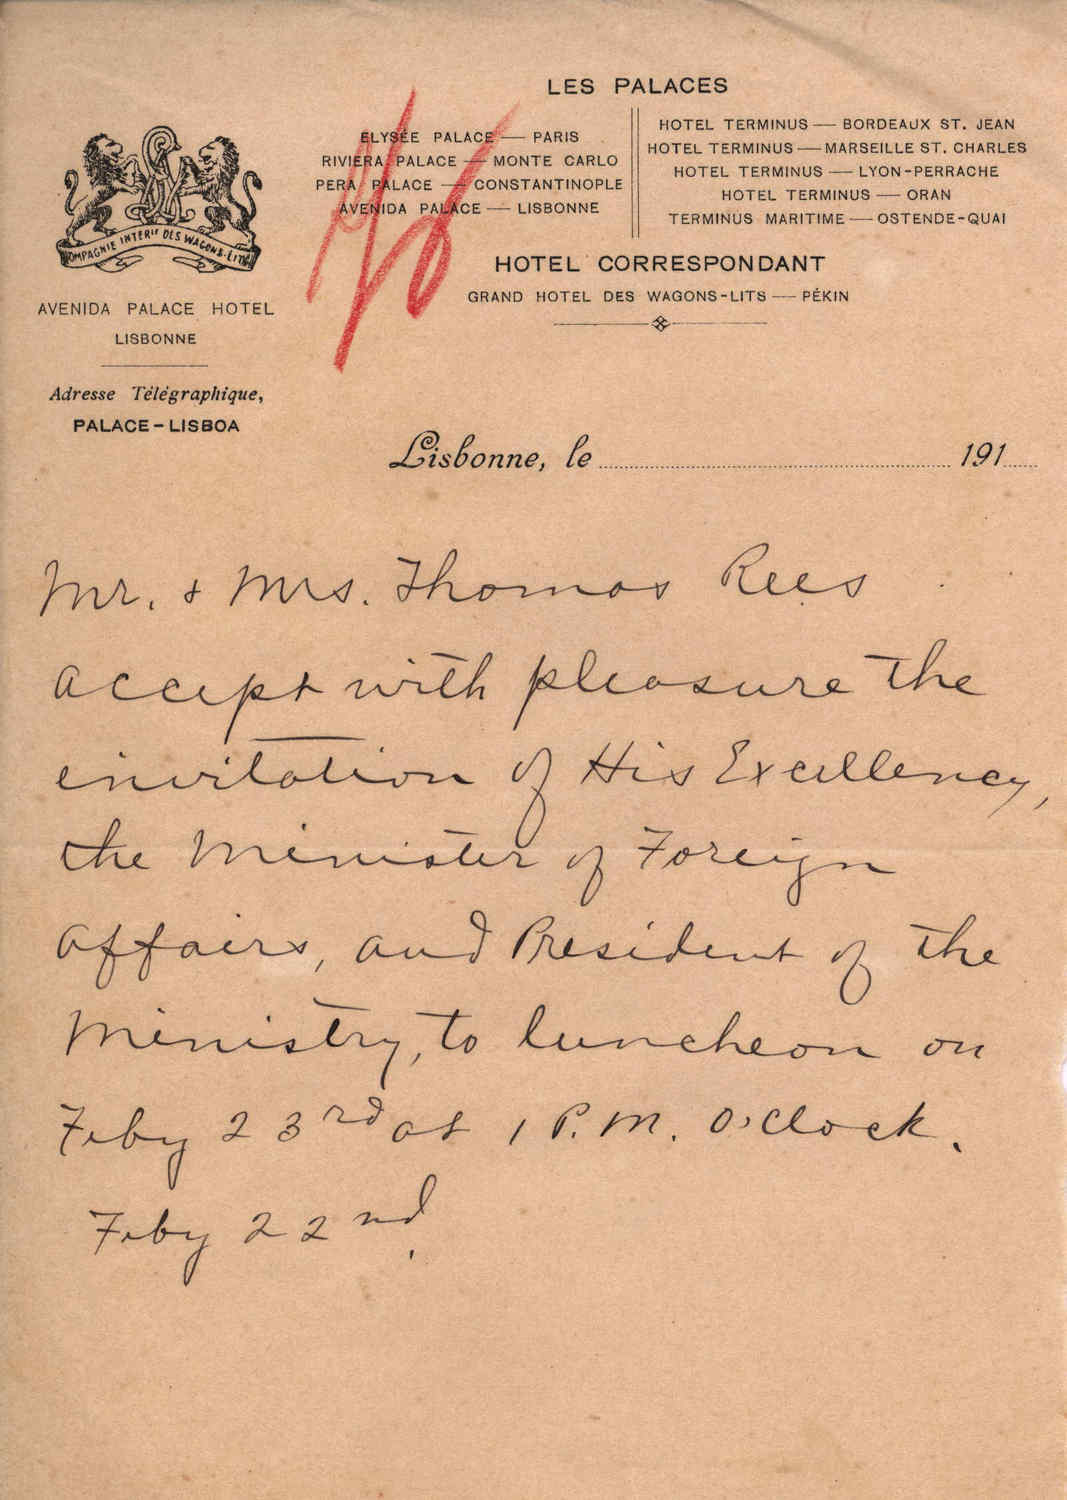 LES PALACES
ELYSÉE PALACE — PARIS
RIVIERA PALACE — MONTE CARLO
PERA PALACE — CONSTANTINOPLE
AVENIDA PALACE — LISBONNE
HOTEL TERMINUS — BORDEAUX ST. JEAN
HOTEL TERMINUS — MARSEILLE ST. CHARLES
HOTEL TERMINUS — LYON-PERRACHE
HOTEL TERMINUS — ORAN
TERMINUS MARITIME — OSTENDE-QUAI
HOTEL CORRESPONDANT
GRAND HOTEL DES WAGONS-LITS — PÉKIN
COMPAGNIE INTERLE DES WAGONS-LITS
AVENIDA PALACE HOTEL
LISBONNE
Adresse Télégraphique,
PALACE-LISBOA
Lisbonne, le 191
Mr. & Mrs. Thomas Rees
accept with pleasure the
invitation of His Excellency,
the Minister of Foreign
Affairs, and President of the
Ministry, to luncheon on
Feby 23rd at 1 P.M. O'Clock.
Feby 22nd.